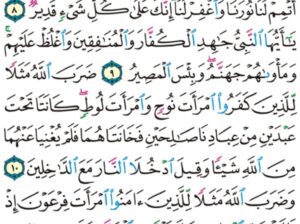 أَتْمِمْ لَنَا نُورَنَا وَٱغْفِرْ لَنَآ إِنَّكَ عَلَىٰ كُلِّ شَىْءٍ قَدِيرٌ ٨
يَٰٓأَيُّهَا ٱلنَّبِىُّ جَٰهِدِ ٱلْكُفَّارَ وَٱلْمُنَٰفِقِينَ وَٱغْلُظْ عَلَيْهِمْ ۚ
وَمَأْوَىٰهُمْ جَهَنَّمُ ۖ وَبِئْسَ ٱلْمَصِيرُ ٩ ضَرَبَ ٱللَّهُ مَثَلًا
لِّلَّذِينَ كَفَرُوا۟ ٱمْرَأَتَ نُوحٍ وَٱمْرَأَتَ لُوطٍ ۖ كَانَتَا تَحْتَ
عَبْدَيْنِ مِنْ عِبَادِنَا صَٰلِحَيْنِ فَخَانَتَاهُمَا فَلَمْ يُغْنِيَا عَنْهُمَا
مِنَ ٱللَّهِ شَيْـًٔا وَقِيلَ ٱدْخُلَا ٱلنَّارَ مَعَ ٱلدَّٰخِلِينَ ١٠
وَضَرَبَ ٱللَّهُ مَثَلًا لِّلَّذِينَ ءَامَنُوا۟ ٱمْرَأَتَ فِرْعَوْنَ إِذْ